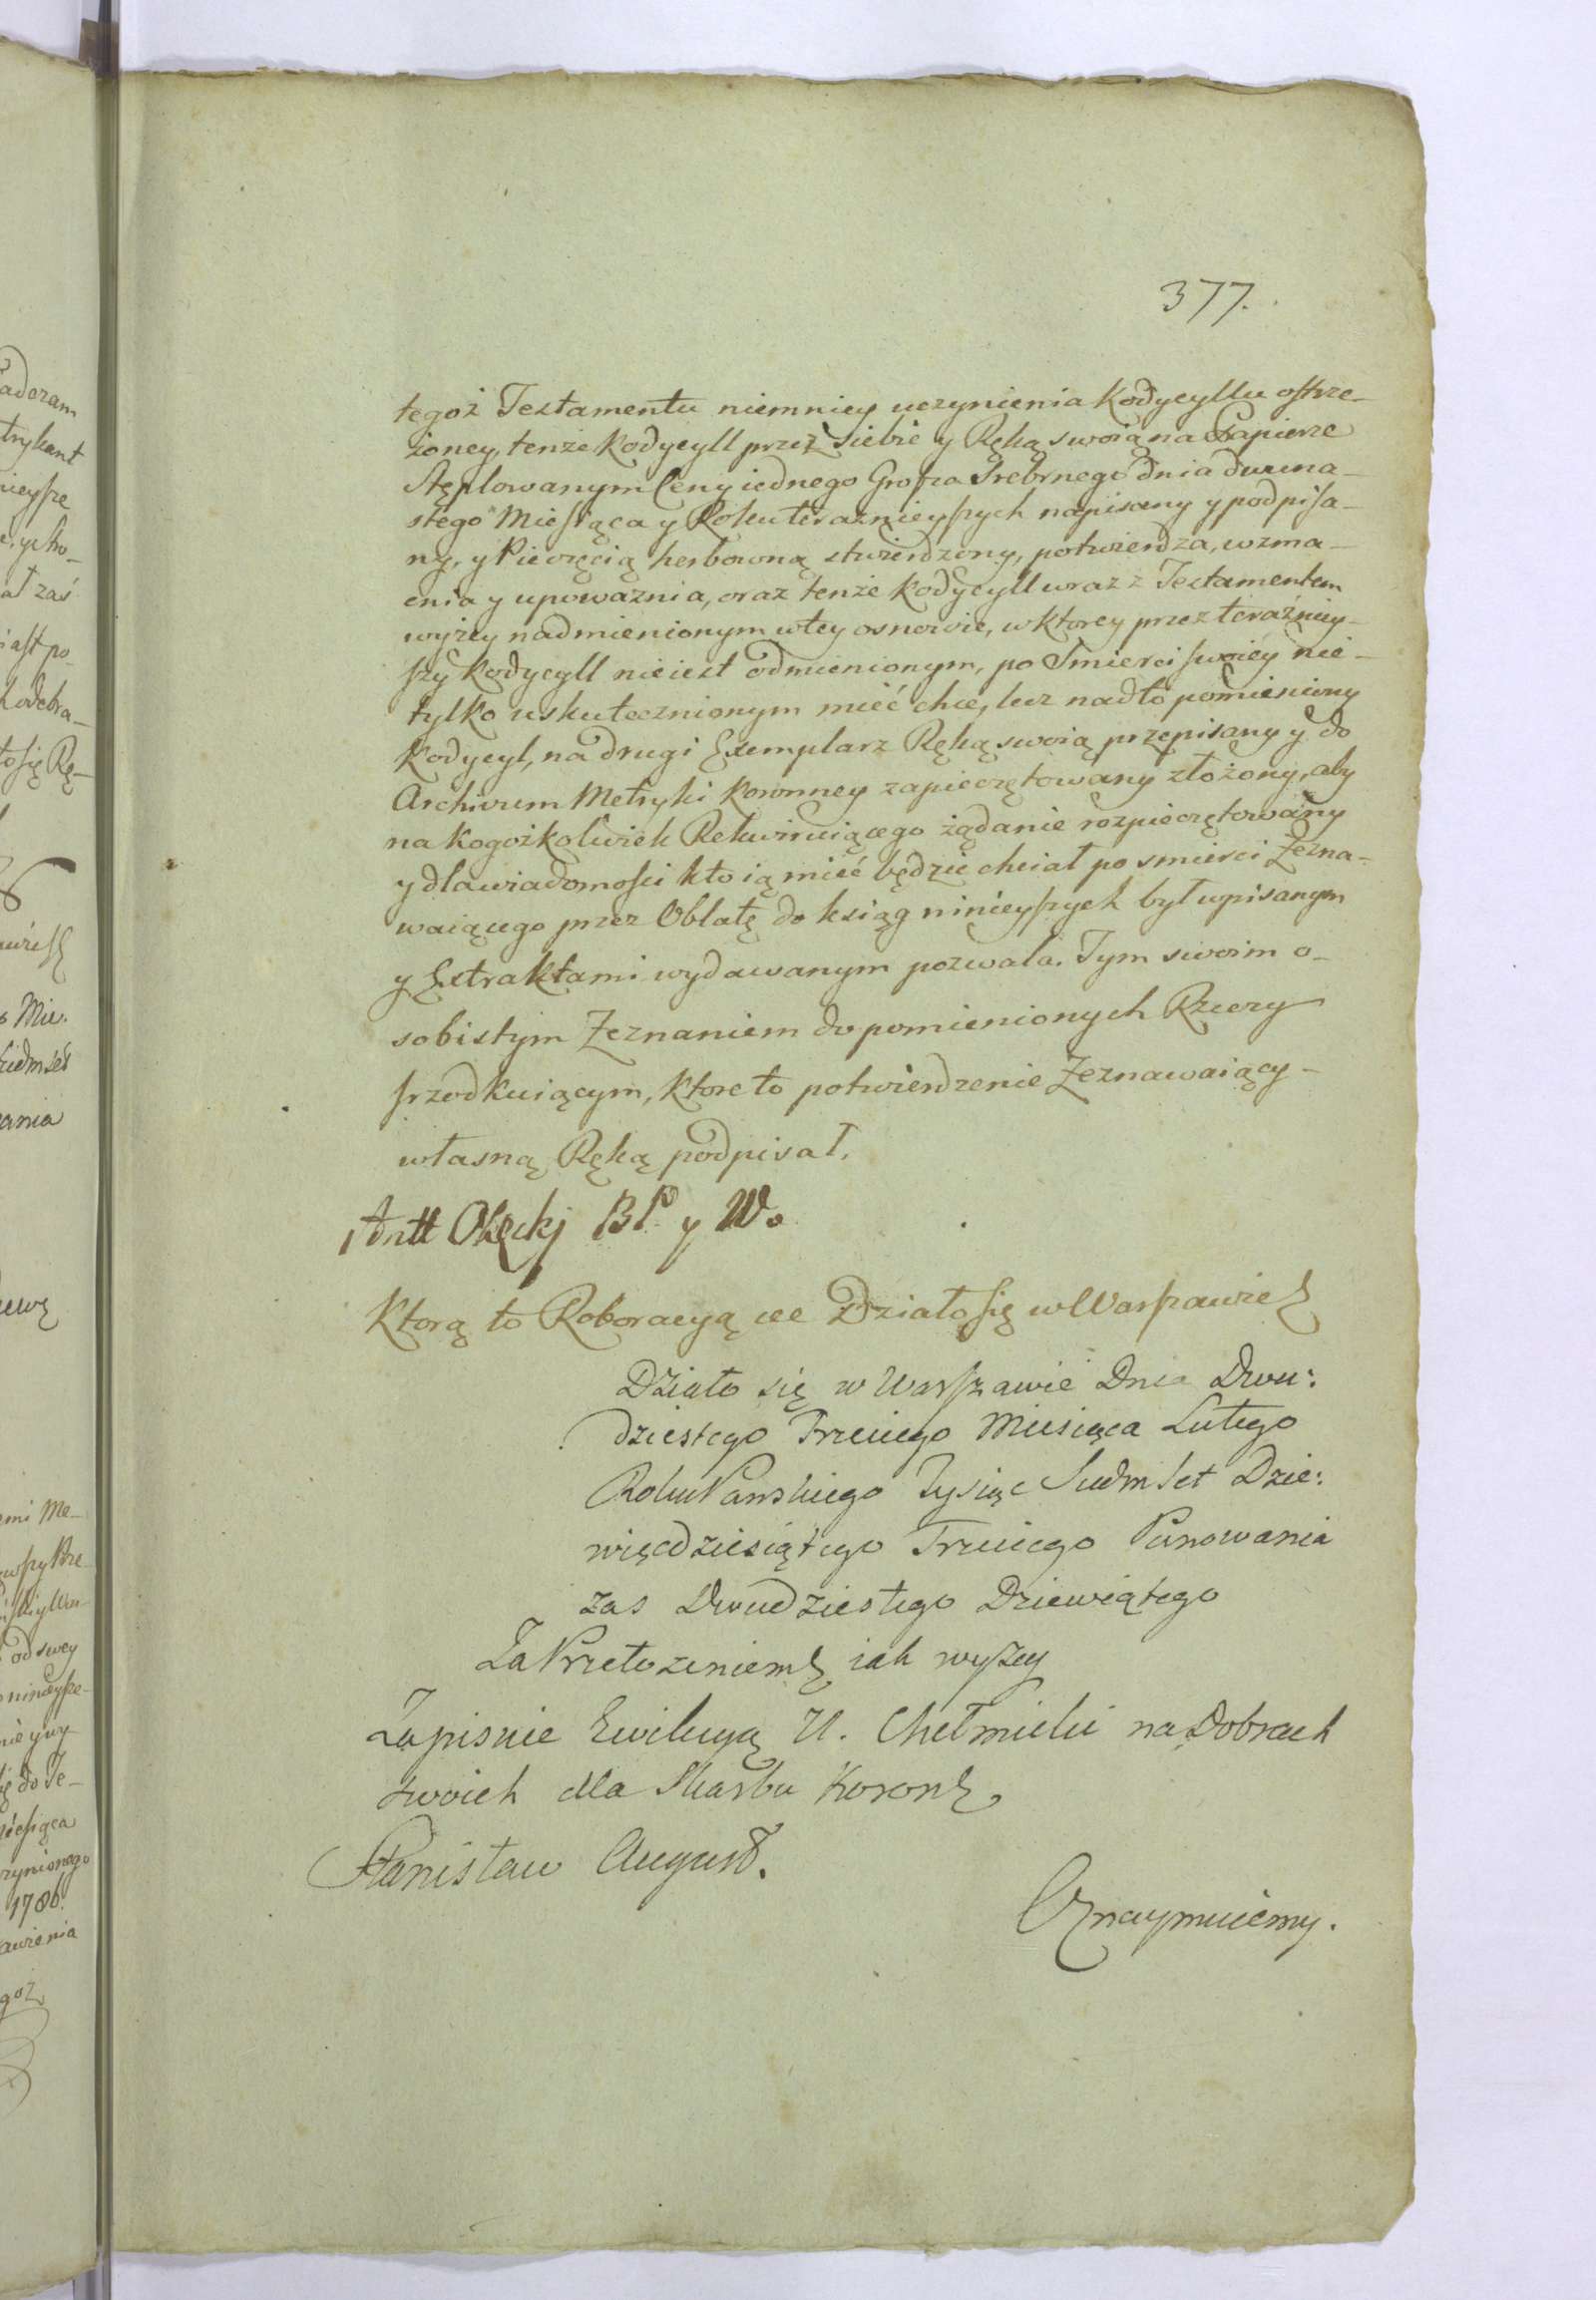 377.
tegoż Testamentu niemniey uczynienia Kodycyllu ostrze-
żoney, tenże Kodycyll przez siebie y Ręką swoią na Papierze
Stęplowanym Ceny iednego Grosza Srebrnego dnia dwuna-
stego Miesiąca y Roku teraznieyszych napisany y podpisa-
ny, y Pieczęcią herbowną stwierdzony, potwierdza, wzma-
cnia y upoważnia, oraz tenże Kodycyll wraz z Testamentem
wyżey nadmienionym w tey osnowie, w ktorey przez teraźniey-
szy Kodycyll nieiest odmienionym, po Smierci swoiey nie-
tylko uskutecznionym mieć chce, lecz nadto pomieniony
Kodycyl, na drugi Exemplarz Ręką swoią przepisany y do
Archivum Metryki Koronney zapieczętowany złożony, aby
na kogożkolwiek Rekwiruiącego żądanie rozpieczętowany
y dla wiadomości kto ią mieć będzie chciał po smierci Zezna-
waiącego przez Oblatę do ksiąg ninieyszych był wpisanym
y Extraktami wydawanym pozwala. Tym swoim o-
sobistym Zeznaniem do pomienionych Rzeczy
srzodkuiącym, ktore to potwierdzenie Zeznawaiący-
własną Ręką podpisał.
Antt Okęckj BP. y W.
Ktorą to Roboracyą etc Działo się w Warszawie
Działo się w Warszawie Dnia Dwu:
dziestego Trzeciego Miesiąca Lutego
Roku Panskiego Tysiąc Siedmset Dzie:
więcdziesiątego Trzeciego Panowania
zas Dwudziestego Dziewiątego
Za Przełożeniem iak wyżey
Zapisuie Ewikcyą U. Chełmicki na Dobrach
swoich dla Skarbu Koron
Stanisław August.
Oznaymuiemy.